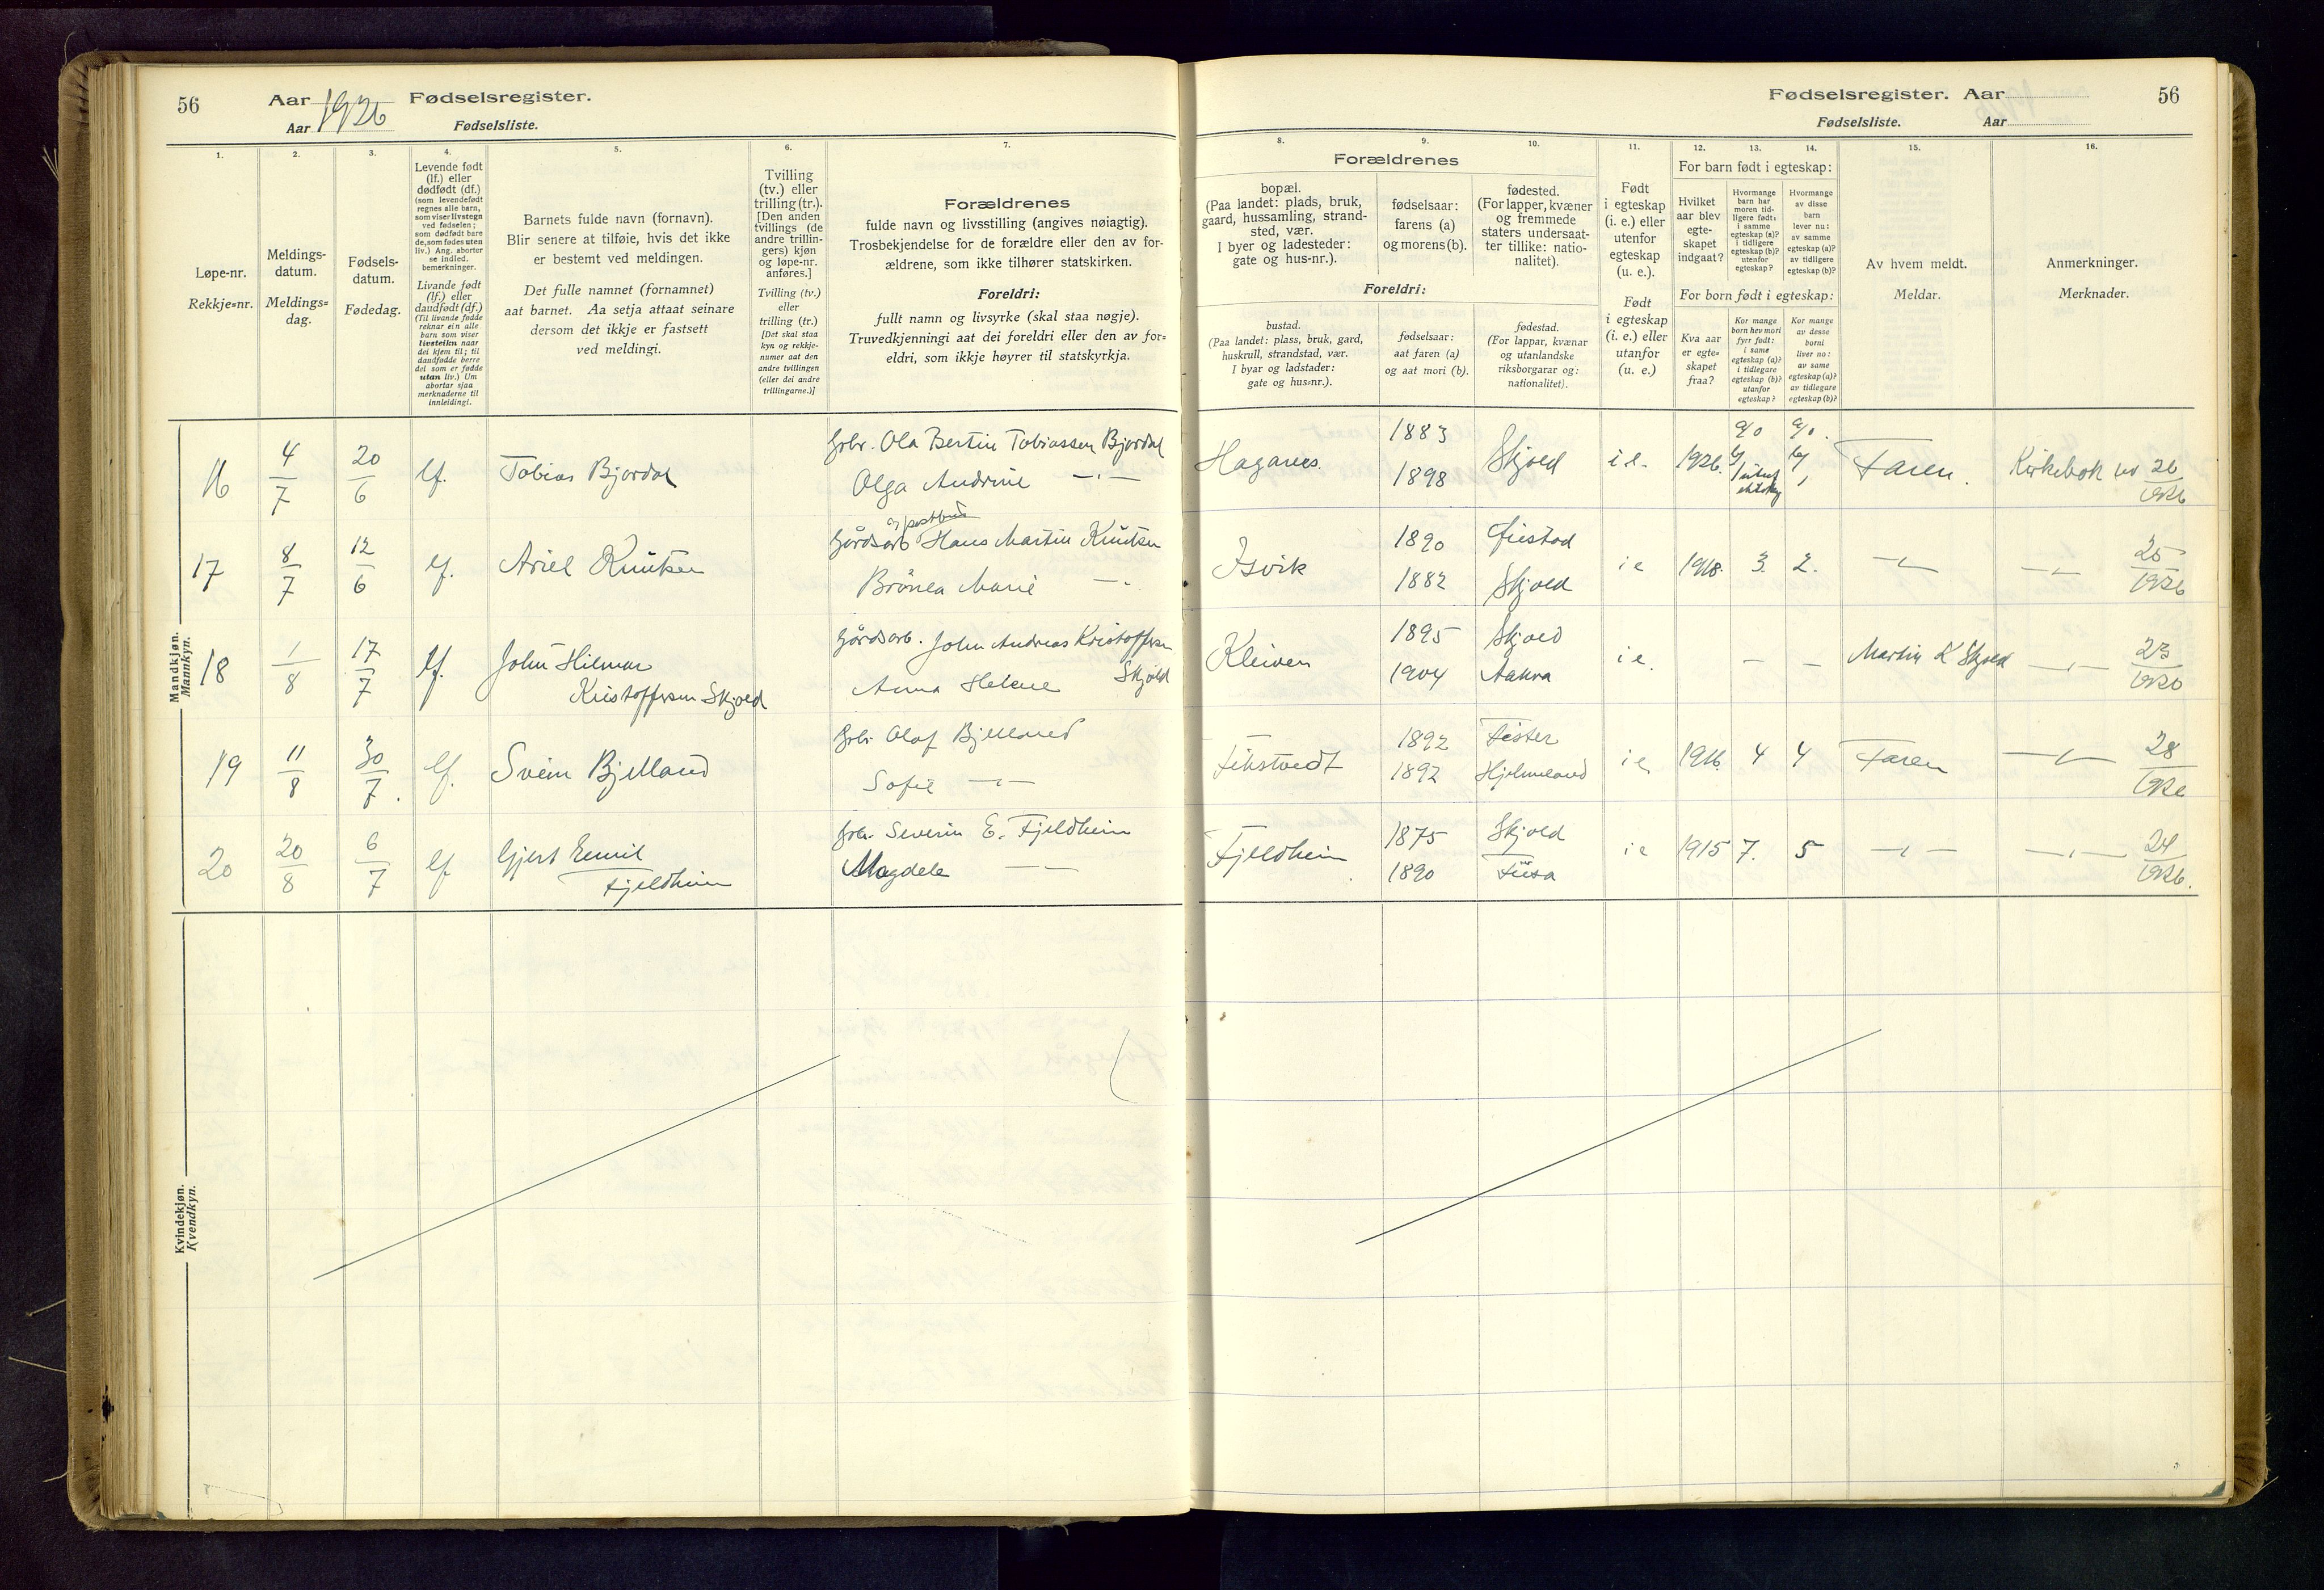 56
Aar 1926 Fødselsregister.
Aar Fødselsliste.
1.
2.
3.
4.
5.
6.
7.
Løpe-nr.
Rekkje=nr.
Meldings-
datum.
Meldings=
dag.
Fødsels-
datum.
Fødedag.
Levende født
(lf.) eller
dødfødt (df.)
(som levendefødt
regnes alle barn,
som viser livstegn
ved fødselen;
som dødfødt bare
de, som fødes uten
liv.) Ang. aborter
se indled.
bemerkninger.
Livande født
(lf.) eller
daudfødt (df.)
(Til livande fødde
reknar ein alle
barn som viser
livsteikn naar
dei kjem til; til
daudfødde berre
dei som er fødde
utan liv.) Um
abortar sjaa
merknaderne til
innleidingi.
Barnets fulde navn (fornavn).
Blir senere at tilføie, hvis det ikke
er bestemt ved meldingen.
Det fulle namnet (fornamnet)
aat barnet. Aa setja attaat seinare
dersom det ikkje er fastsett
ved meldingi.
Tvilling
(tv.) eller
trilling (tr.).
[Den anden
tvillings (de
andre trillin-
gers) kjøn
og løpe-nr.
anføres.]
Tvilling (tv.)
eller
trilling (tr.)
[Det skal staa
kyn og rekkje-
numer aat den
andre tvillingen
(eller dei andre
trillingarne.)]
Forældrenes
fulde navn og livsstilling (angives nøiagtig).
Trosbekjendelse for de forældre eller den av for-
ældrene, som ikke tilhører statskirken.
Foreldri:
fullt namn og livsyrke (skal staa nøgje).
Truvedkjenningi aat dei foreldri eller den av for=
eldri, som ikkje høyrer til statskyrkja.
Mandkjøn.
Mannkyn.
16 4/7 20/6 lf. Tobias Bjordal
Grbr. Ola Bertin Tobiassen Bjordal
Olga Andrine —"—
17 8/7 12/6 lf. Ariel Knutsen
og postbud
Gårdsarb Hans Martin Knutsen
Marie —"
18 1/8 17/7 lf. John Hilmar
Kristoffersen Skjold
Gårdsarb. John Andreas Kristoffersen
Skjold
Anna Helene
19 11/8 30/7. lf. Svein Bjelland
Grbr Olaf Bjelland
Sofie —"—
20 20/8 6/7 lf Gjert Emil
Fjeldheim
Grbr. Severin E. Fjeldheim
Magdele — —
Kvindekjøn.
Kvendkyn.
Fødselsregister. Aar
56
Fødselsliste. Aar
8.
9.
10.
11.
12.
13.
14.
15.
16.
Forældrenes
bopæl.
(Paa landet: plads, bruk,
gaard, hussamling, strand-
sted, vær.
I byer og ladesteder:
gate og hus-nr.).
fødselsaar:
farens (a)
og morens (b).
fødested.
(For lapper, kvæner
og fremmede
staters undersaat-
ter tillike: natio-
nalitet).
Foreldri:
bustad.
(Paa landet: plass, bruk, gard,
huskrull, strandstad, vær.
I byar og ladstader:
gate og hus=nr.).
fødselsaar:
aat faren (a)
og aat mori (b).
fødestad.
(For lappar, kvænar
og utanlandske
riksborgarar og:
nationalitet).
Født
i egteskap
(i. e.) eller
utenfor
egteskap
(u. e.).
Født
i egteskap
(i. e.) eller
utanfor
(u. e.)
For barn født i egteskap:
Hvilket
aar blev
egte-
skapet
indgaat?
Hvormange
barn har
moren tid-
ligere født:
i samme
egteskap (a)?
i tidligere
egteskap (b)?
utenfor
egteskap?
Hvormange
av disse
barn
lever nu:
av samme
egteskap (a)?
av tidligere
egteskap (b)?
For born født i egteskap:
Kva aar
er egte=
skapet
fraa?
Kor mange
born hev mori
fyrr født:
i same
egteskap (a)?
i tidlegare
egteskap (b)?
utanfor
egteskap?
Kor mange
av desse
borni
liver no:
av same
egteskap (a)?
av tidlegare
egteskap (b)?
Av hvem meldt.
Meldar.
Anmerkninger.
Merknader.
1883
Skjold i e. 1926. Faren. Kirkebok nr 26/1926
1898
1890
Isvik i e 1918. 3. 2. —"— —"— 25/1926
1882 Skjold
1895 Skjold
Kleiven i e. — — Martin K Skjold —"— 23/1926
1904 Aakra
1892 Fister
i e 1916. 4 4 Faren —"— 28/1926
1892 Hjelmeland
1875 Skjold
Fjeldheim i e 1915 7. 5 —"— —"— 24/1926.
1890 Fusa